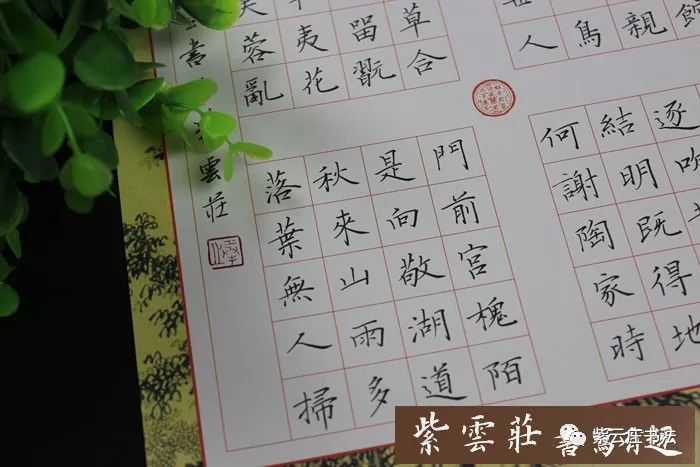 親
鳥
人
草合
留翫
夷花
蓉亂
書
雲莊
逐吹
結明既得地
何謝陶家時
門前宮槐陌
是向敬湖道
秋來山雨多
落葉無人掃
紫雲莊
紫云庄书法